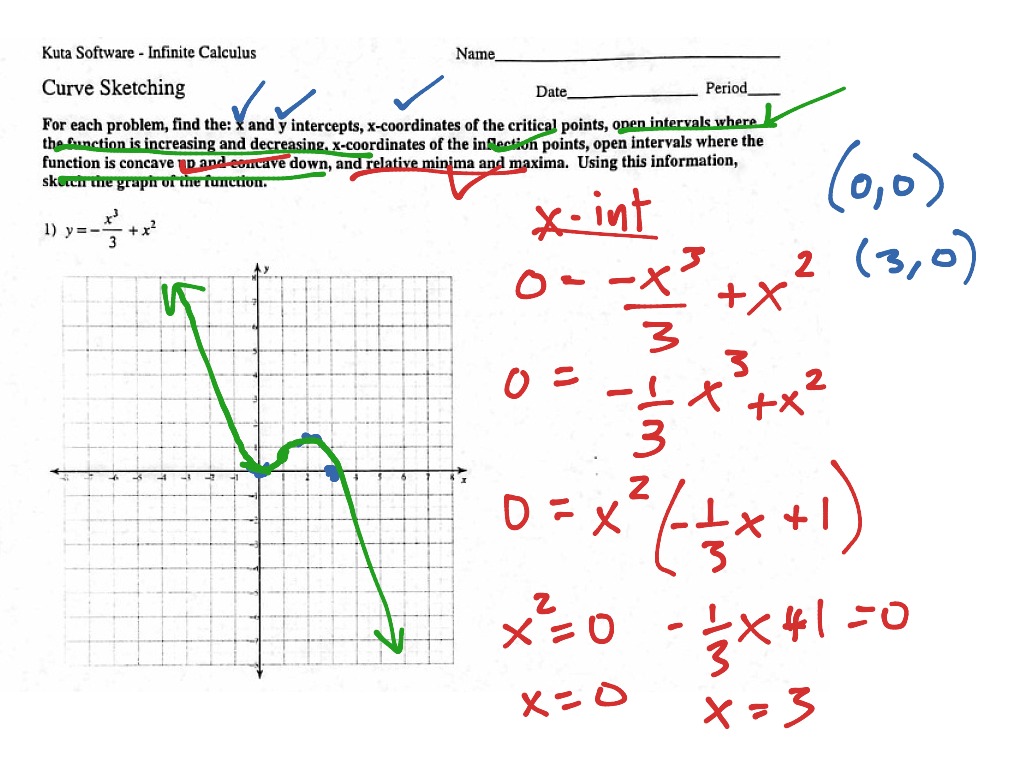 Kuta Software - Infinite Calculus
Name
Curve Sketching
Date Period
For each problem, find the: x and y intercepts, x-coordinates of the critical points, open intervals where
the function is increasing and decreasing, x-coordinates of the inflection points, open intervals where the
function is concave up and concave down, and relative minima and maxima. Using this information,
sketch the graph of the function.
1) y = -x³/3 + x²
y
x
x-int
0 = -x³/3 + x²
0 = -1/3 x³ + x²
0 = x² (-1/3 x + 1)
x² = 0 -1/3 x + 1 = 0
x = 0 x = 3
(0,0)
(3,0)